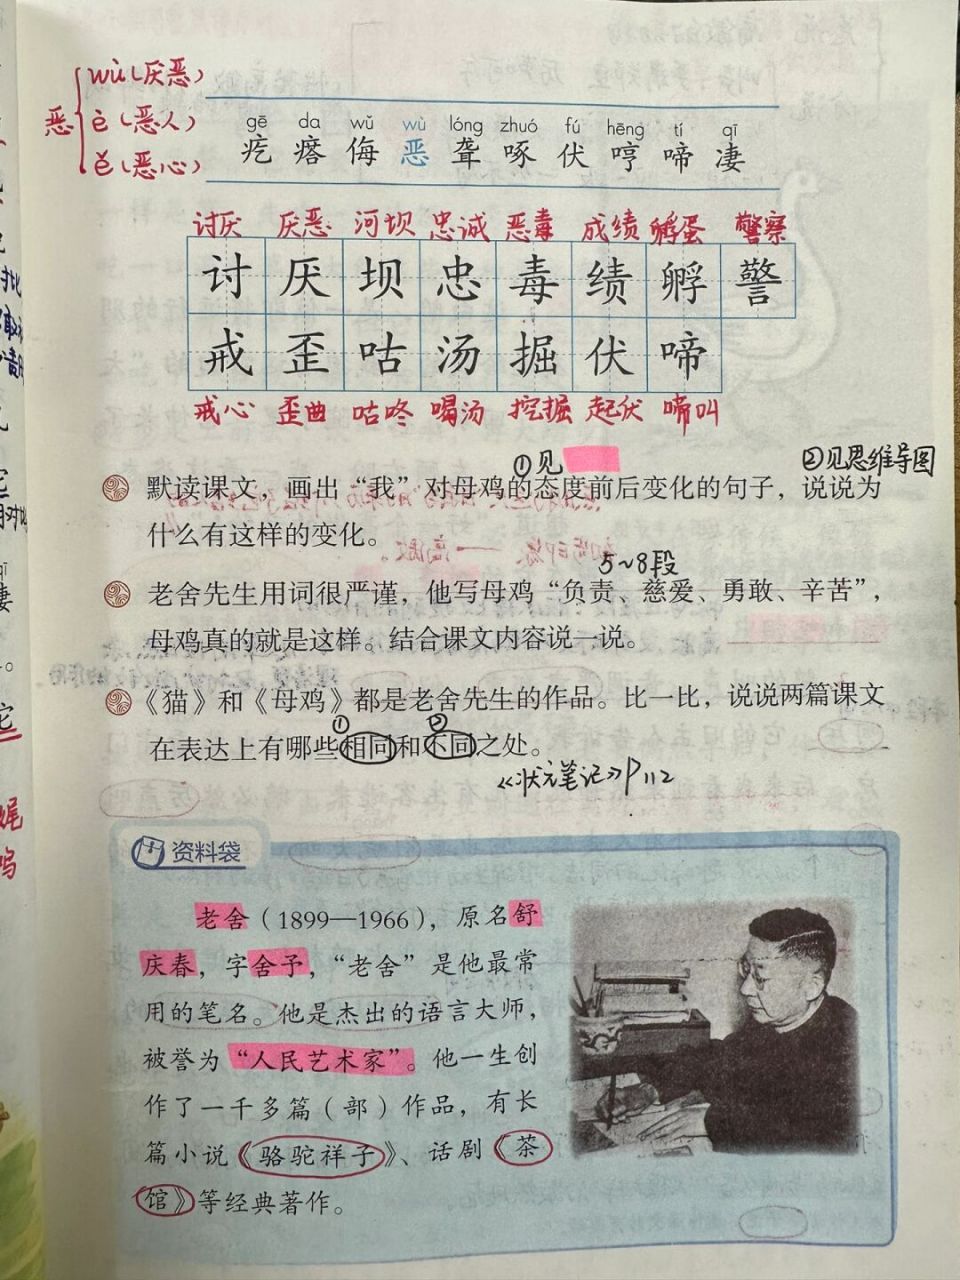 恶
wù（厌恶）
è（恶人）
ě（恶心）
gē da wǔ wù lóng zhuó fú hēng tí qī
疙 瘩 侮 恶 聋 啄 伏 哼 啼 凄
讨厌 厌恶 河坝 忠诚 恶毒 成绩 孵蛋 警察
讨 厌 坝 忠 毒 绩 孵 警
戒 歪 咕 汤 掘 伏 啼
戒心 歪曲 咕咚 喝汤 挖掘 起伏 啼叫
①见
②见思维导图
默读课文，画出“我”对母鸡的态度前后变化的句子，说说为
什么有这样的变化。
5~8段
老舍先生用词很严谨，他写母鸡“负责、慈爱、勇敢、辛苦”，
母鸡真的就是这样。结合课文内容说一说。
《猫》和《母鸡》都是老舍先生的作品。比一比，说说两篇课文
① ②
在表达上有哪些相同和不同之处。
《状元笔记》P112
资料袋
老舍（1899—1966），原名舒
庆春，字舍予，“老舍”是他最常
用的笔名。他是杰出的语言大师，
被誉为“人民艺术家”。他一生创
作了一千多篇（部）作品，有长
篇小说《骆驼祥子》、话剧《茶
馆》等经典著作。